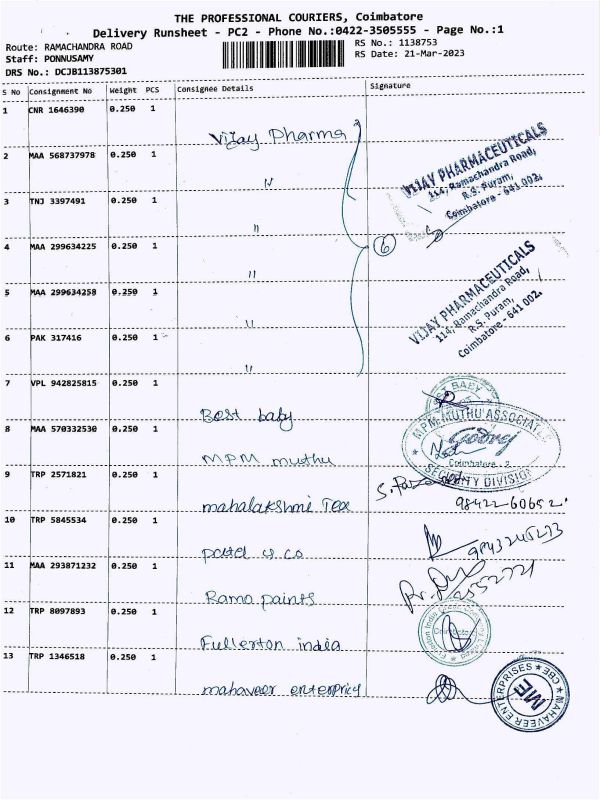 THE PROFESSIONAL COURIERS, Coimbatore
Delivery Runsheet - PC2 - Phone No.:0422-3505555 - Page No.:1
Route: RAMACHANDRA ROAD
RS No.: 1138753
Staff: PONNUSAMY
RS Date: 21-Mar-2023
DRS No.: DCJB113875301
S No Consignment No Weight PCS Consignee Details Signature
1 CNR 1646390 0.250 1
Vijay Pharma
2 MAA 568737978 0.250 1
"
VIJAY PHARMACEUTICALS
114, Ramachandra Road,
R.S. Puram,
Coimbatore - 641 002.
3 TNJ 3397491 0.250 1
"
4 MAA 299634225 0.250 1
6
"
VIJAY PHARMACEUTICALS
114, Ramachandra Road,
R.S. Puram,
Coimbatore - 641 002.
5 MAA 299634258 0.250 1
"
6 PAK 317416 0.250 1
"
7 VPL 942825815 0.250 1
Best baby
BABY
8 MAA 570332530 0.250 1
MPM muthu
M.P.M. MUTHU ASSOCIATES
Godrej
Coimbatore - 2
SECURITY DIVISION
9 TRP 2571821 0.250 1
mahalakshmi Tex
10 TRP 5845534 0.250 1
patel & co
11 MAA 293871232 0.250 1
Rama paints
12 TRP 8097893 0.250 1
Fullerton india
Coimbatore
13 TRP 1346518 0.250 1
mahaveer enterpricy
MAHAVEER ENTERPRISES
CBE
ME